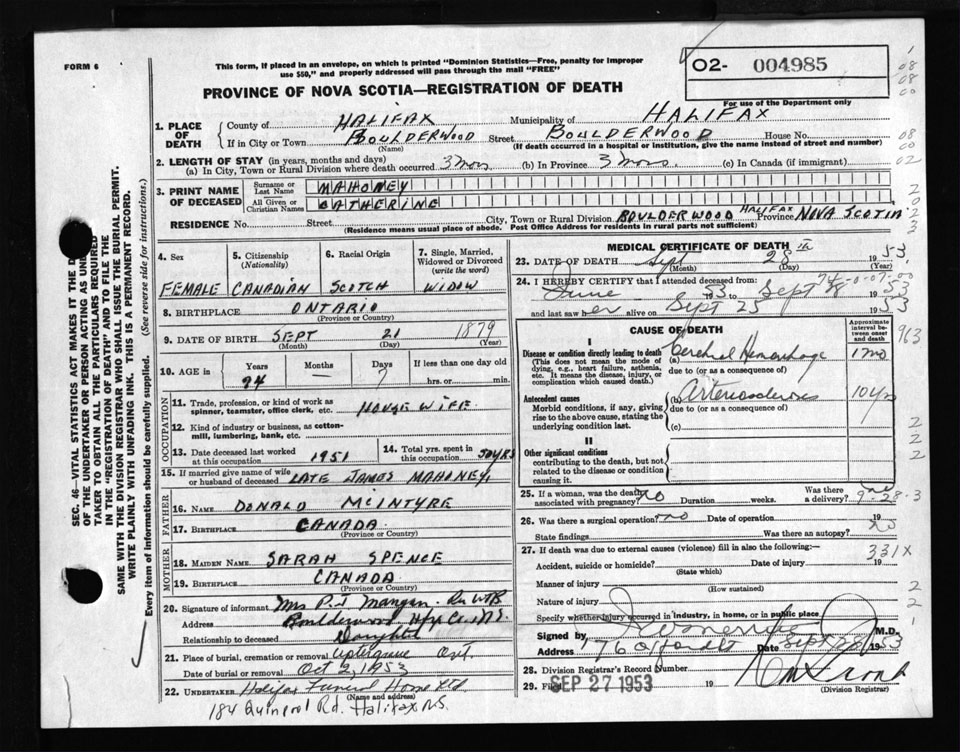 FORM 6
This form, if placed in an envelope, on which is printed "Dominion Statistics—Free, penalty for improper
use $50," and properly addressed will pass through the mail "FREE"
O2- 004985
For use of the Department only
PROVINCE OF NOVA SCOTIA—REGISTRATION OF DEATH
1. PLACE OF DEATH
County of HALIFAX Municipality of HALIFAX
If in City or Town BOULDERWOOD Street BOULDERWOOD House No.
(Name) (If death occurred in a hospital or institution, give the name instead of street and number)
2. LENGTH OF STAY (in years, months and days)
(a) In City, Town or Rural Division where death occurred 3 mos. (b) In Province 3 mos. (c) In Canada (if immigrant)
3. PRINT NAME OF DECEASED
Surname or Last Name MAHONEY
All Given or Christian Names CATHERINE
RESIDENCE No. Street City, Town or Rural Division BOULDERWOOD HALIFAX Province NOVA SCOTIA
(Residence means usual place of abode. Post Office Address for residents in rural parts not sufficient)
4. Sex FEMALE
5. Citizenship (Nationality) CANADIAN
6. Racial Origin SCOTCH
7. Single, Married, Widowed or Divorced (write the word) WIDOW
8. BIRTHPLACE ONTARIO
(Province or Country)
9. DATE OF BIRTH SEPT 21 1879
(Month) (Day) (Year)
10. AGE in Years 74 Months — Days 7 If less than one day old hrs. or min.
OCCUPATION
11. Trade, profession, or kind of work as spinner, teamster, office clerk, etc. HOUSE WIFE
12. Kind of industry or business, as cotton-mill, lumbering, bank, etc.
13. Date deceased last worked at this occupation 1951
14. Total yrs. spent in this occupation 50 YRS
15. If married give name of wife or husband of deceased LATE JAMES MAHONEY
FATHER
16. NAME DONALD McINTYRE
17. BIRTHPLACE CANADA
(Province or Country)
MOTHER
18. MAIDEN NAME SARAH SPENCE
19. BIRTHPLACE CANADA
(Province or Country)
20. Signature of informant Mrs P.J. Mangan
Address Boulderwood, Hfx Co., N.S.
Relationship to deceased Daughter
21. Place of burial, cremation or removal Uptergrove Ont.
Date of burial or removal Oct 2, 1953
22. UNDERTAKER Halifax Funeral Home Ltd
(Name and address)
184 Quinpool Rd. Halifax N.S.
MEDICAL CERTIFICATE OF DEATH
23. DATE OF DEATH Sept 28 th 1953
(Month) (Day) (Year)
24. I HEREBY CERTIFY that I attended deceased from:
June 1953 to Sept 1953
and last saw her alive on Sept 25 1953
CAUSE OF DEATH
Approximate interval between onset and death
I
Disease or condition directly leading to death
(This does not mean the mode of dying, e.g., heart failure, asthenia, etc. It means the disease, injury, or complication which caused death.)
(a) Cerebral Hemorrhage 1 mo
due to (or as a consequence of)
Antecedent causes
Morbid conditions, if any, giving rise to the above cause, stating the underlying condition last.
(b) Arteriosclerosis 10 yrs
due to (or as a consequence of)
(c)
II
Other significant conditions
contributing to the death, but not related to the disease or condition causing it.
25. If a woman, was the death associated with pregnancy? no Duration weeks. Was there a delivery? no
26. Was there a surgical operation? no Date of operation 19
State findings Was there an autopsy? no
27. If death was due to external causes (violence) fill in also the following:—
331X
Accident, suicide or homicide? Date of injury 19
(State which)
Manner of injury
(How sustained)
Nature of injury
Specify whether injury occurred in industry, in home, or in public place
Signed by M.D.
Address 176 Oxford St Date Sept 28 1953
28. Division Registrar's Record Number
29. Filed SEP 27 1953 19
(Division Registrar)
SEC. 46—VITAL STATISTICS ACT MAKES IT THE
OF THE UNDERTAKER OR PERSON ACTING AS
TAKER TO OBTAIN ALL THE PARTICULARS REQUIRED
IN THE "REGISTRATION OF DEATH" AND TO FILE THE
SAME WITH THE DIVISION REGISTRAR WHO SHALL ISSUE THE BURIAL PERMIT.
WRITE PLAINLY WITH UNFADING INK. THIS IS A PERMANENT RECORD.
Every item of information should be carefully supplied. (See reverse side for instructions.)